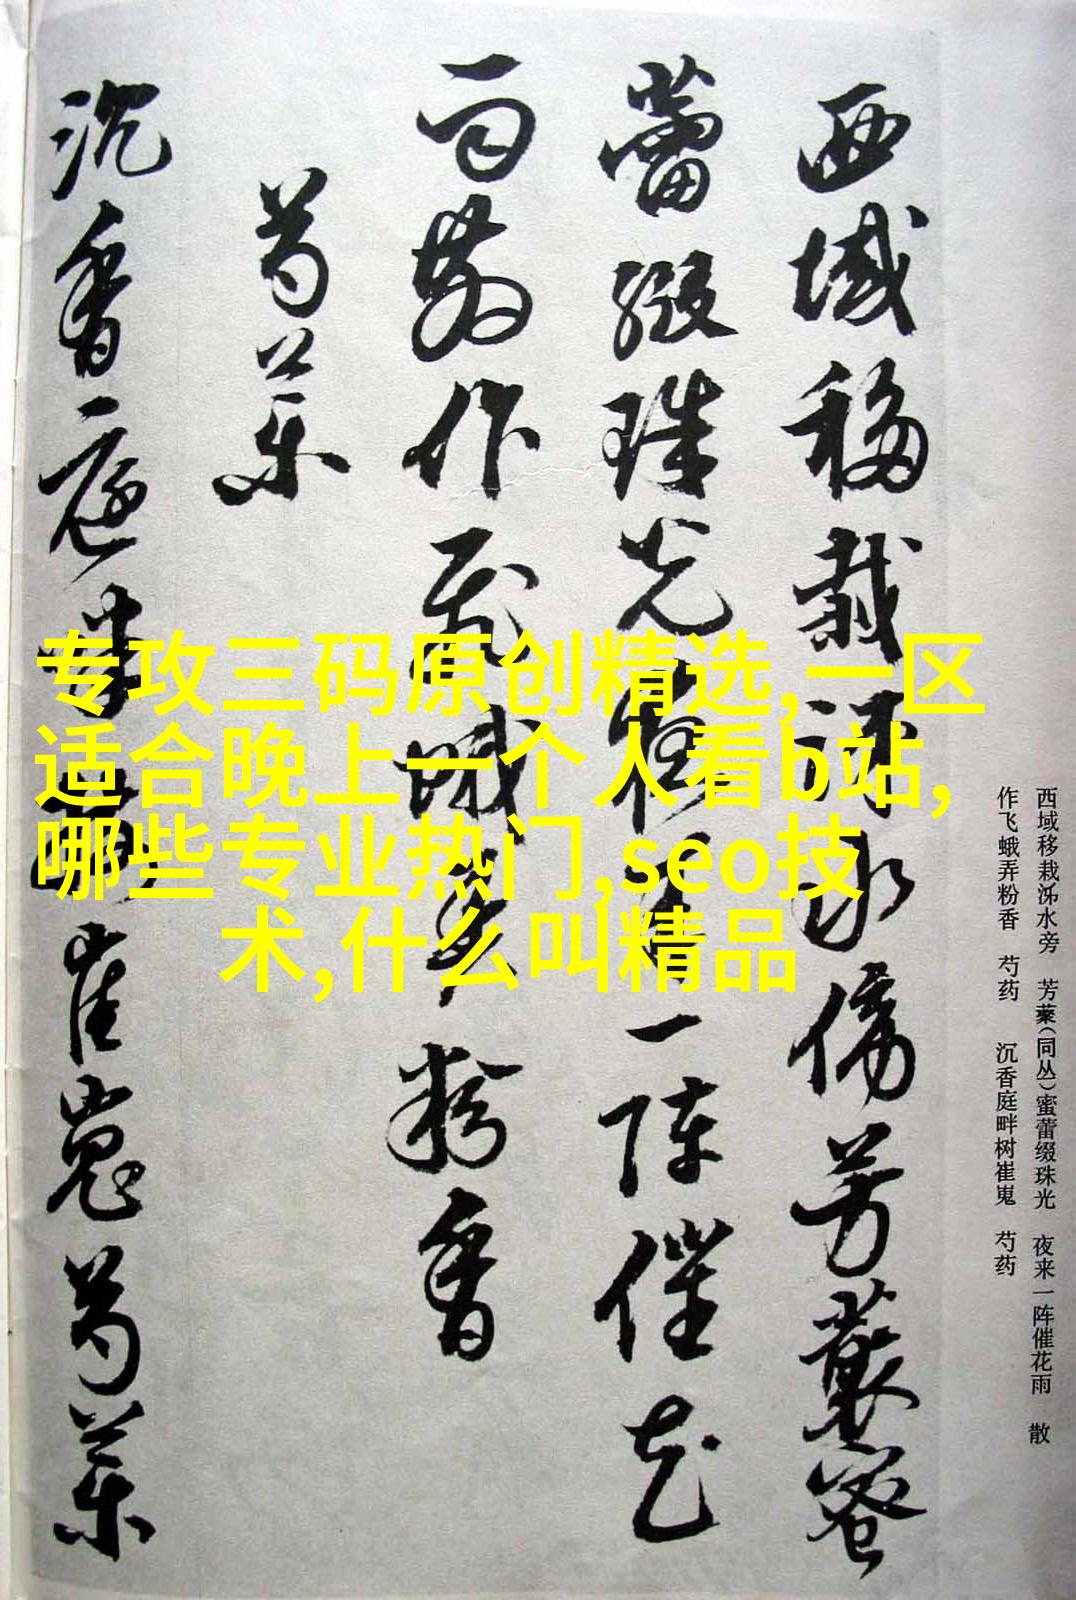 西域移栽泺水旁 芳藂(同丛)蜜蕾缀珠光 夜来一阵催花雨 散
作飞蛾弄粉香 芍药 沉香庭畔树崔嵬 芍药
西域移栽泺水傍芳藂蜜
蕾缀珠光夜来一陣催花
雨散作飛蛾弄粉香
芍藥
沉香庭畔树崔嵬芍藥
专攻三码原创精选,一区
适合晚上一个人看b站,
哪些专业热门,seo技
术,什么叫精品